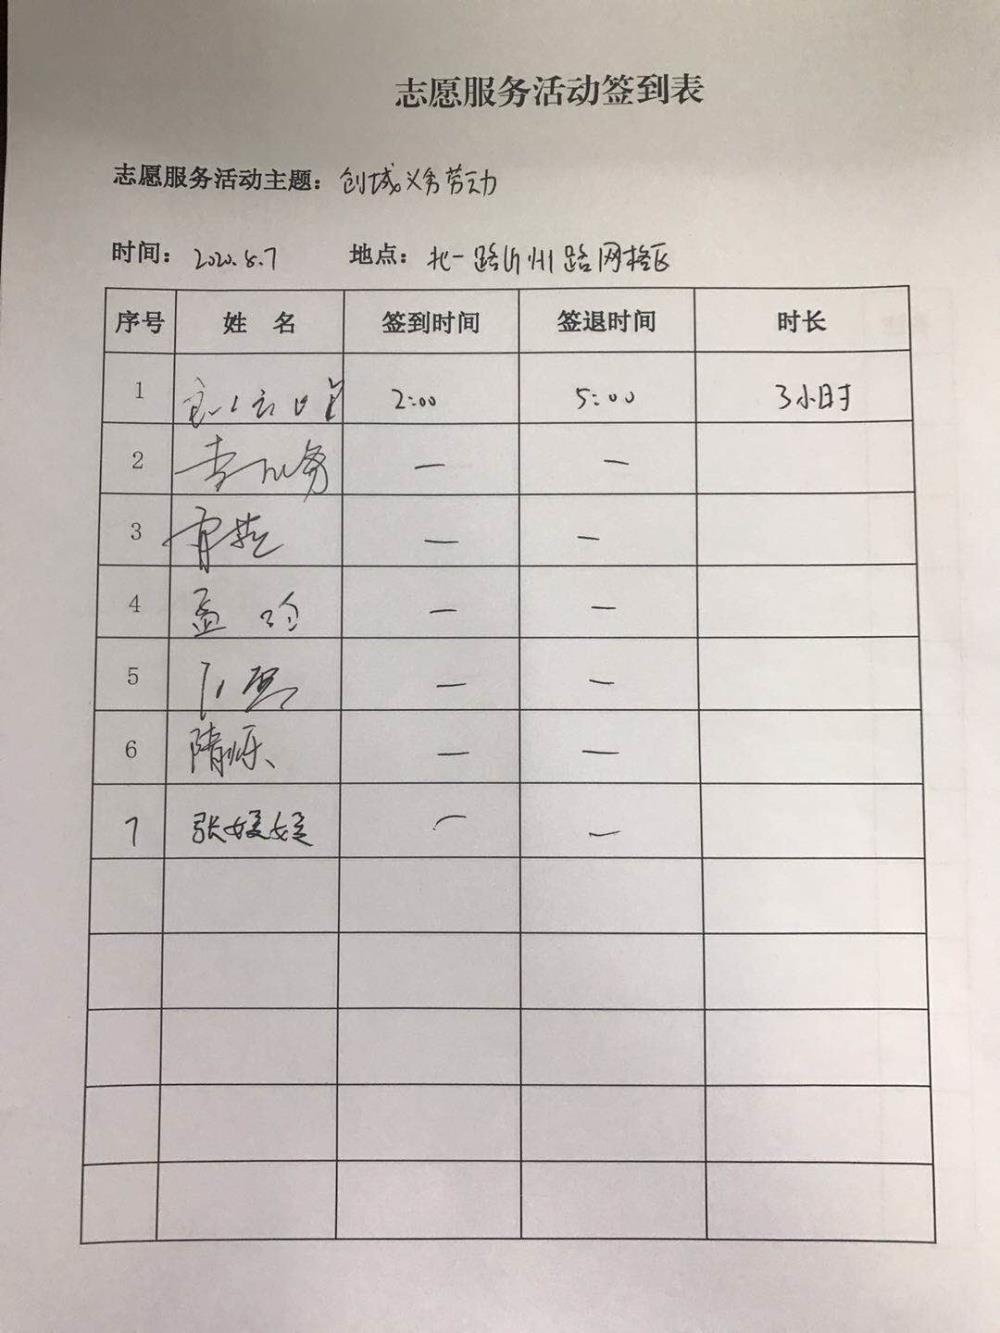 志愿服务活动签到表
志愿服务活动主题：创城义务劳动
时间：2020.8.7 地点：北一路沂州路网格区
序号 姓 名 签到时间 签退时间 时长
1 2:00 5:00 3小时
2 — —
3 — —
4 孟 — —
5 — —
6 隋烁 — —
7 张媛媛 — —